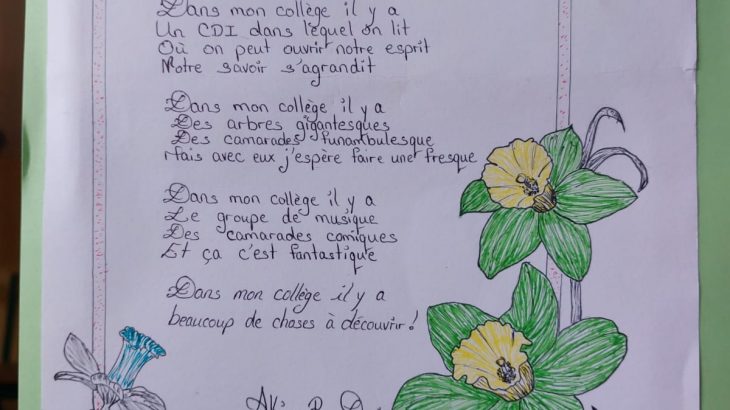 Dans mon collège il y a
Un CDI dans lequel on lit
Où on peut ouvrir notre esprit
Notre savoir s'agrandit
Dans mon collège il y a
Des arbres gigantesques
Des camarades funambulesque
Mais avec eux j'espère faire une fresque
Dans mon collège il y a
Le groupe de musique
Des camarades comiques
Et ça c'est fantastique
Dans mon collège il y a
beaucoup de choses à découvrir!